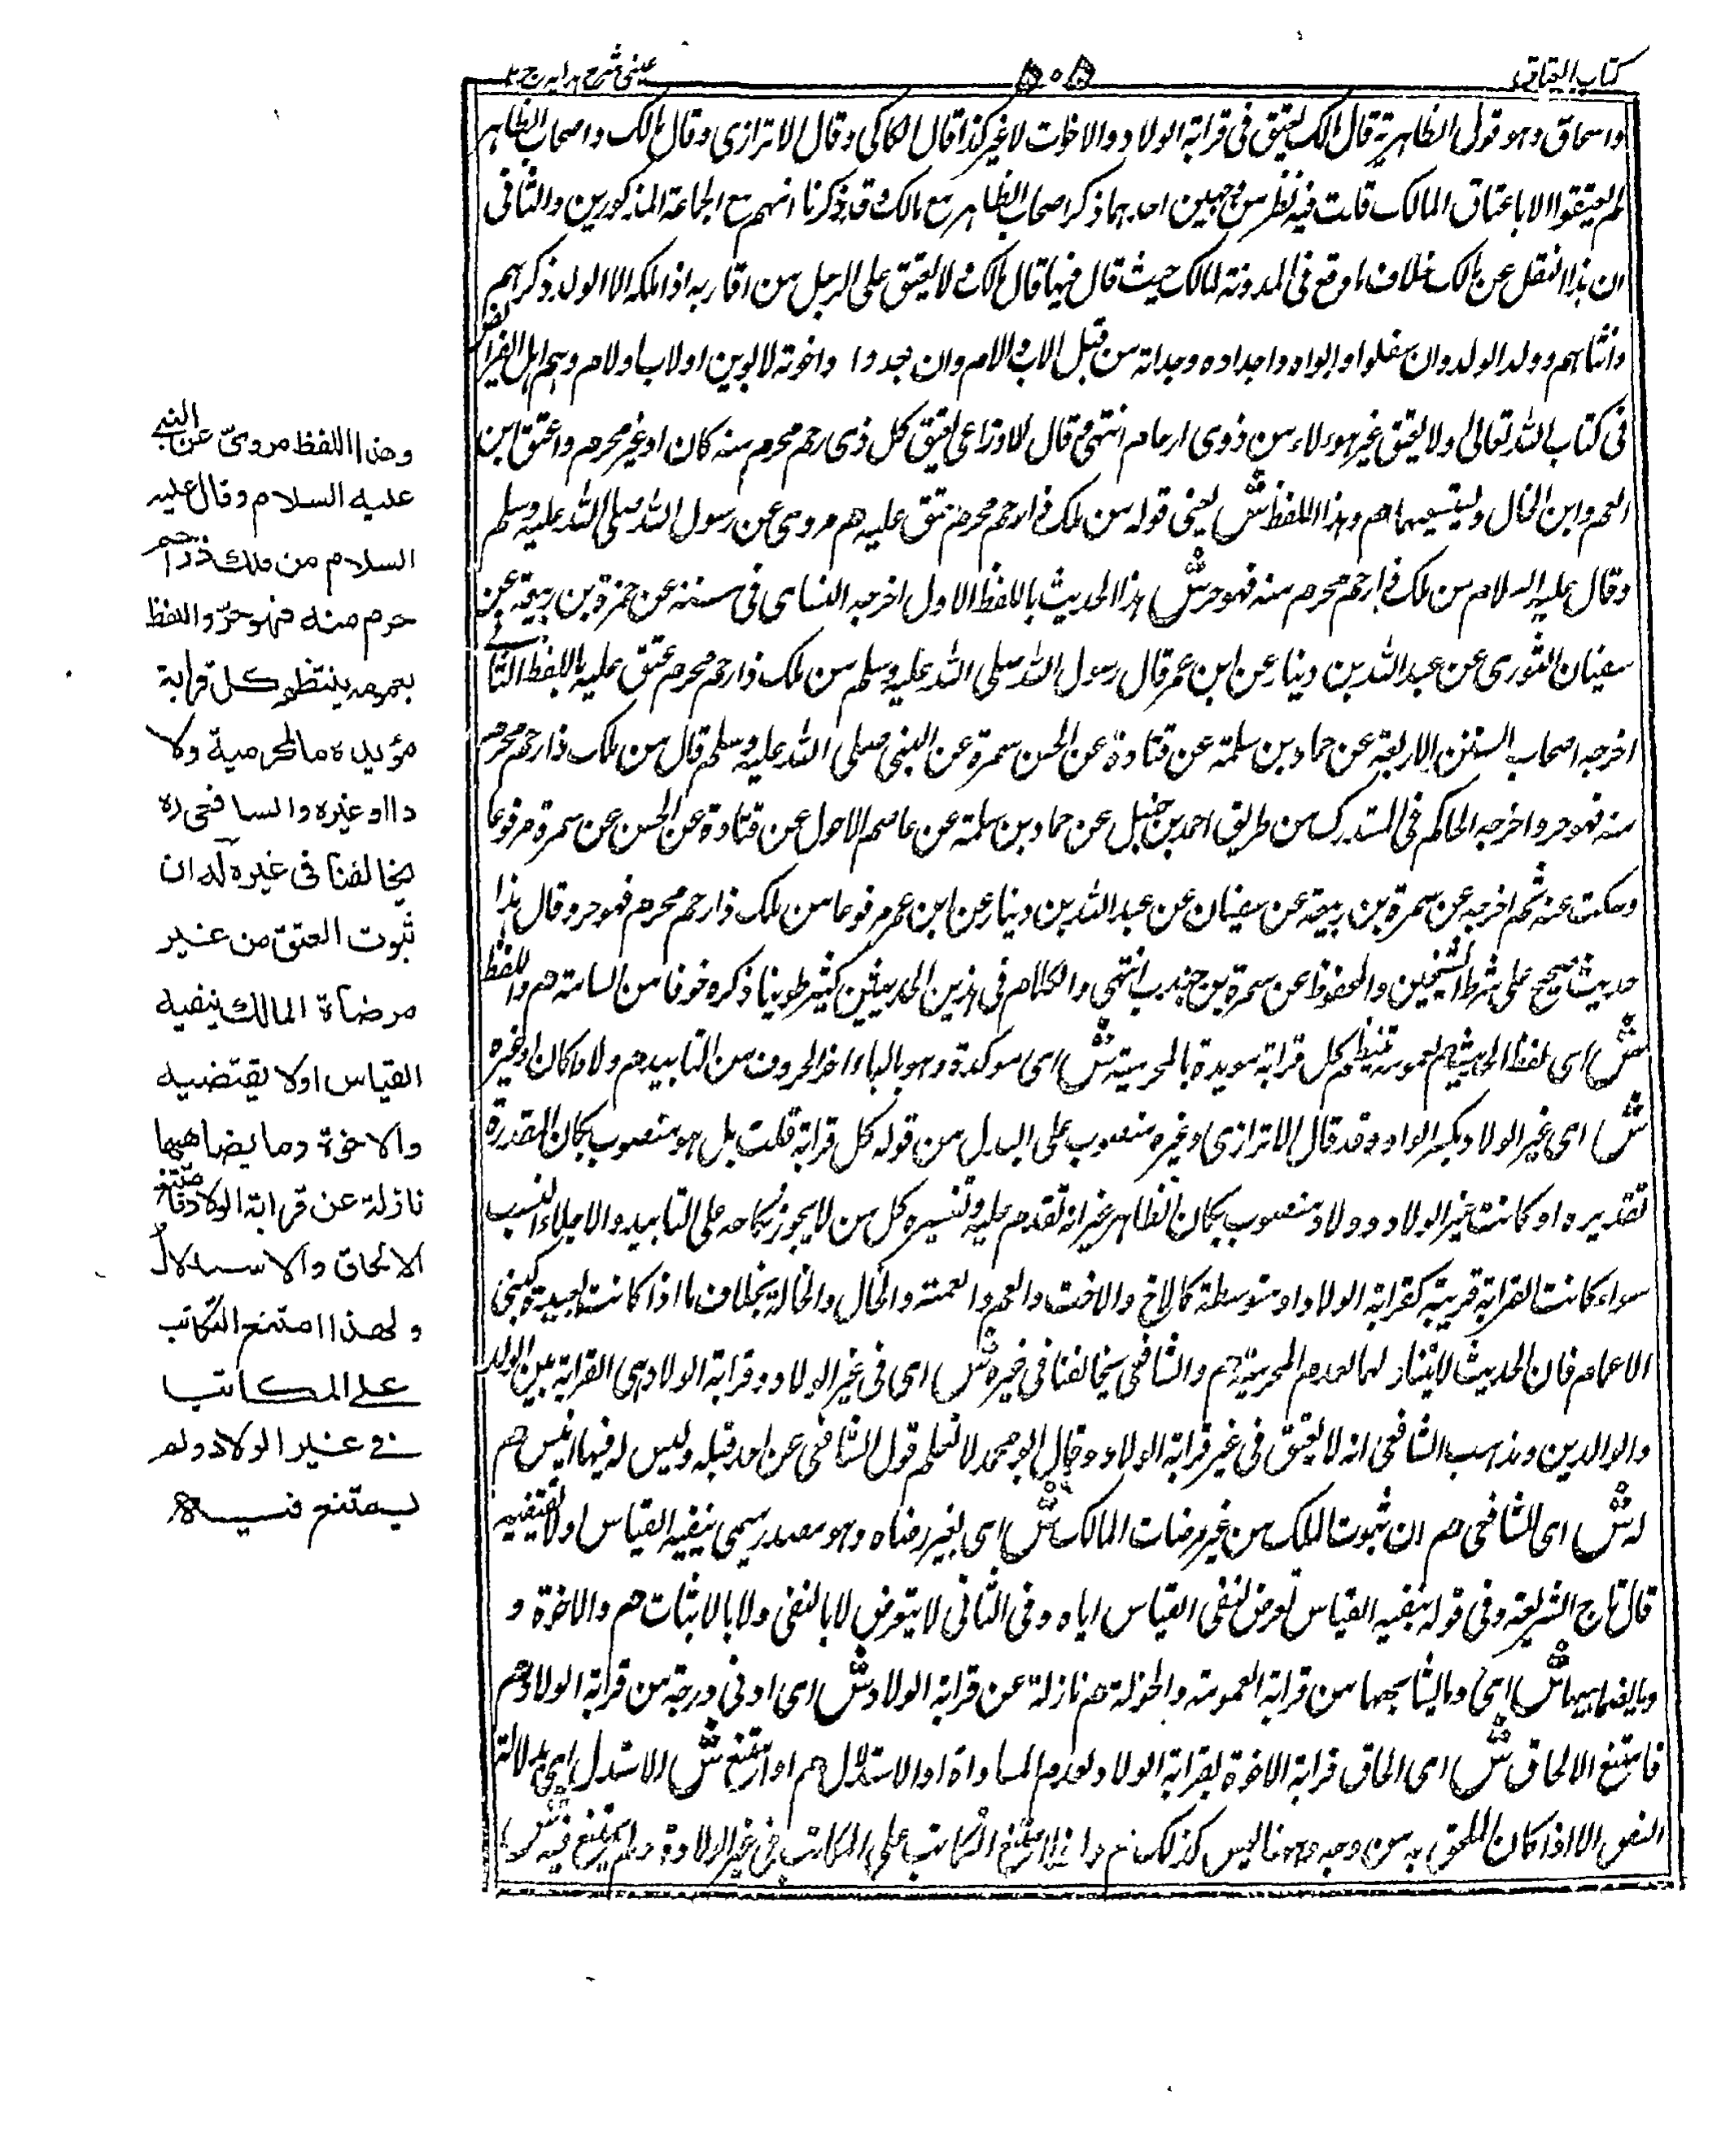 كتاب العتاق
٥٠٥
عينى شرح هدايه ج ٢
واسحاق وهو قول الظاهرية قال مالك يعتق فى قرابة الولاد والاخوات لا غير كذا قال الكاكى وقال الاترازى وقال مالك واصحاب الظاهر
لم يعتقوا الا باعتاق المالك قلت فيه نظر من وجهين احدهما ذكر اصحاب الظاهر مع مالك وقد ذكرنا انهم مع الجماعة المذكورين والثانى
ان هذا النقل عن مالك خلاف ما وقع فى المدونة لمالك حيث قال فيها قال مالك ولا يعتق على الرجل من اقاربه اذا ملكه الا الولد ذكرهم
وانثاهم وولد الولد وان سفلوا وابواه واجداده وجداته من قبل الاب والام وان بعدوا واخوته لابوين او لاب او لام وهم اهل الفرائض
فى كتاب الله تعالى ولا يعتق غير هولاء من ذوى ارحام انتهى م قال الاوزاعى يعتق كل ذى رحم محرم منه كان او غير محرم واعتق ابن
العم وابن الخال ويستسعيهما هم وهذا اللفظ ش يعنى قوله من ملك ذا رحم محرم عتق عليه هم مروى عن رسول الله صلى الله عليه وسلم
وقال عليه السلام من ملك ذا رحم محرم منه فهو حر ش هذا الحديث باللفظ الاول اخرجه النساى فى سننه عن حمزة بن ربيعة عن
سفيان الثورى عن عبد الله بن دينار عن ابن عمر قال رسول الله صلى الله عليه وسلم من ملك ذا رحم محرم عتق عليه باللفظ الثانى
اخرجه اصحاب السنن الاربعة عن حماد بن سلمة عن قتادة عن الحسن سمرة عن النبى صلى الله عليه وسلم قال من ملك ذا رحم محرم
منه فهو حر واخرجه الحاكم فى المستدرك من طريق احمد بن حنبل عن حماد بن سلمة عن عاصم الاحول عن قتادة عن الحسن عن سمرة مرفوعا
وسكت عنه ثم اخرجه عن سمرة بن ربيعة عن سفيان عن عبد الله بن دينار عن ابن عمر مرفوعا من ملك ذا رحم محرم فهو حر وقال هذا
حديث صحيح على شرط الشيخين والمحفوظ عن سمرة بن جندب انتهى والكلام فى هذين الحديثين كثير طوينا ذكره خوفا من السامة هم واللفظ
ش اى لفظ الحديث هم بعمومه ينتظم كل قرابة مويدة بالمحرمية ش اى موكدة وهو بالباء اخر الحروف من التابيد هم ولادا كان او غيره
ش اى غير الولاد بكسر الواو وقد قال الاترازى وغيره منصوب على البدل من قوله كل قرابة قلت بل هو منصوب بكان المقدرة
تقديره او كانت غير الولاد وولاد منصوب بكان الظاهر غير انه تقدم عليه وتفسيره كل من لا يجوز نكاحه على التابيد والا جلاء النسب
سواء كانت القرابة قريبة كقرابة الولاد او متوسطة كالاخ والاخت والعم والعمة والخال والخالة بخلاف ما اذا كانت بعيدة كبنى
الاعمام فان الحديث لا يتناولهما لعدم المحرمية هم والشافعى يخالفنا فى غيره ش اى فى غير الولاد وقرابة الولاد هى القرابة بين الولد
والوالدين ومذهب الشافعى انه لا يعتق فى غير قرابة الولاد وقال ابو محمد لا نعلم قول الشافعى عن احد قبله وليس له فيها انيس هم
له ش اى للشافعى هم ان ثبوت الملك من غير مرضات المالك ش اى بغير رضاه وهو مصدر ميمى ينفيه القياس او لا يقتضيه
قال تاج الشريعة وفى قوله ينفيه القياس تعرض لنفى القياس اياه وفى الثانى لا يتعرض لا بالنفى ولا بالاثبات هم والاخوة و
ما يضاهيها ش اى وما يشابهها من قرابة العمومة والخولة هم نازلة عن قرابة الولاد ش اى ادنى درجة من قرابة الولاد هم
فامتنع الالحاق ش اى الحاق قرابة الاخوة بقرابة الولاد لعدم المساواة او الاستدلال هم او امتنع ش الاستدلال اى بدلالة
النص الا اذا كان الملحق به من وجه وههنا ليس كذلك م ولهذا امتنع التكاتب على المكاتب فى غير الولادة ولم يمتنع فيه ش
وهذا اللفظ مروىّ عن النبى
عليه السلام وقال عليه
السلام من ملك ذا رحم
محرم منه فهو حرّ واللفظ
بعمومه ينتظم كل قرابة
مؤيدة بالمحرمية ولا
دا او غيره والشافعى رح
يخالفنا فى غيره له ان
ثبوت العتق من غير
مرضاة المالك ينفيه
القياس اولا يقتضيه
والاخوة وما يضاهيها
نازلة عن قرابة الولاد فامتنع
الالحاق والاستدلال
ولهذا امتنع التكاتب
على المكاتب
فى غير الولاد ولم
يمتنع فيه